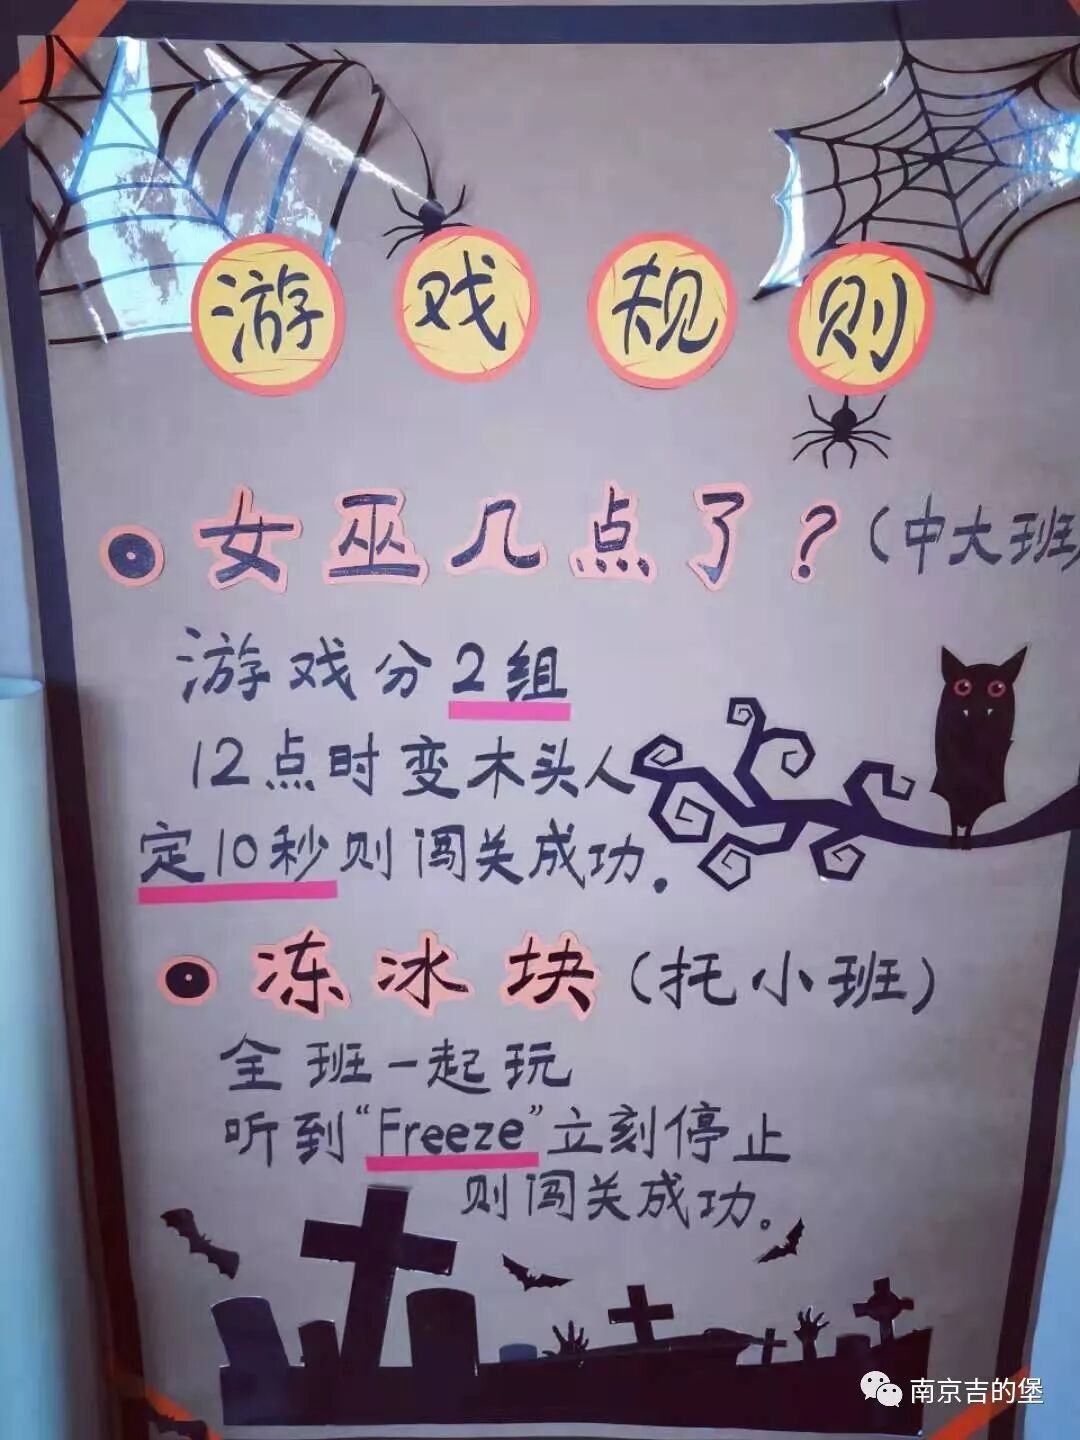 游戏规则
女巫几点了？（中大班）
游戏分2组
12点时变木头人
定10秒则闯关成功.
冻冰块（托小班）
全班一起玩
听到“Freeze”立刻停止
则闯关成功。
南京吉的堡